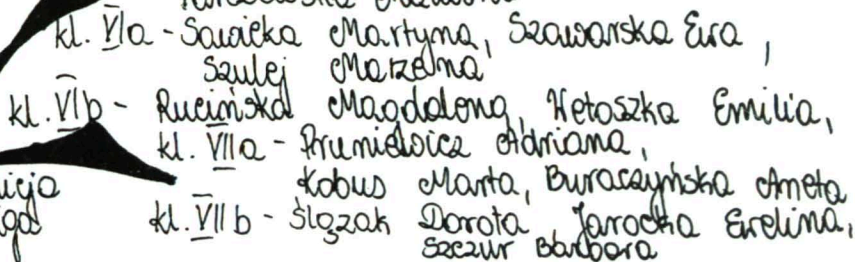 kl. VIa - Sawicka Martyna, Szawarska Ewa,
Szulej Marzena
kl. VIb - Rucińska Magdalena, Wetoszka Emilia,
kl. VIIa - Pruniewicz Adriana,
icja Kobus Marta, Buraczyńska Aneta
iga kl. VIIb - Ślązak Dorota Jarocka Ewelina,
Szczur Barbara